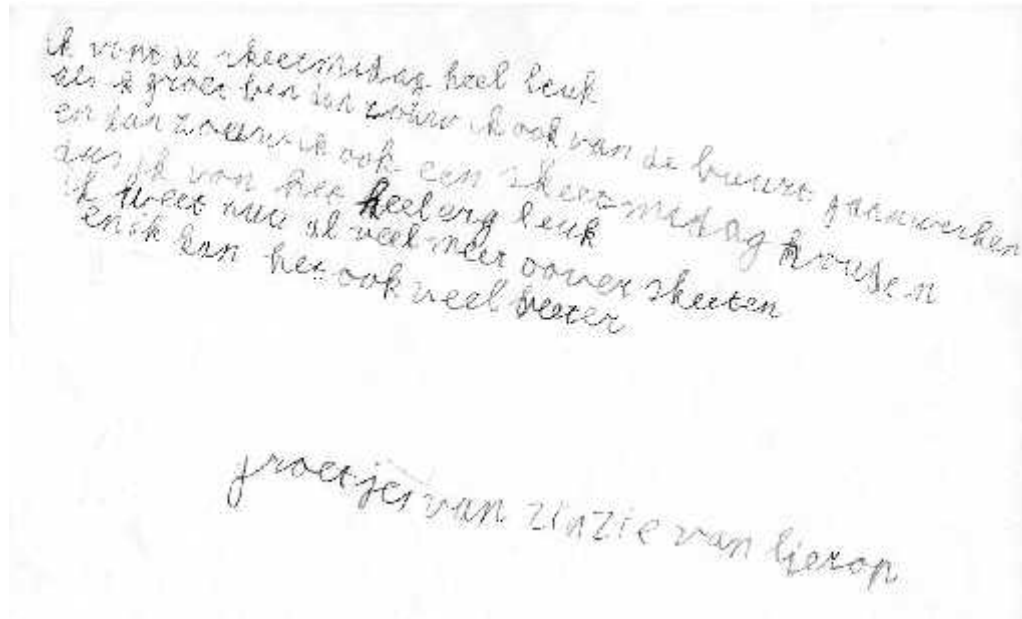 ik vont de skeetmidag heel leuk
als ik groot ben dan zouw ik ook van de buurt gaanwerken
en dan zouw ik ook een skeetmidag houden
dus ik von het heel erg leuk
ik weet nuu al veel meer oover skeeten
en ik kan het ook veel beeter
groetjes van zinzie van lierop